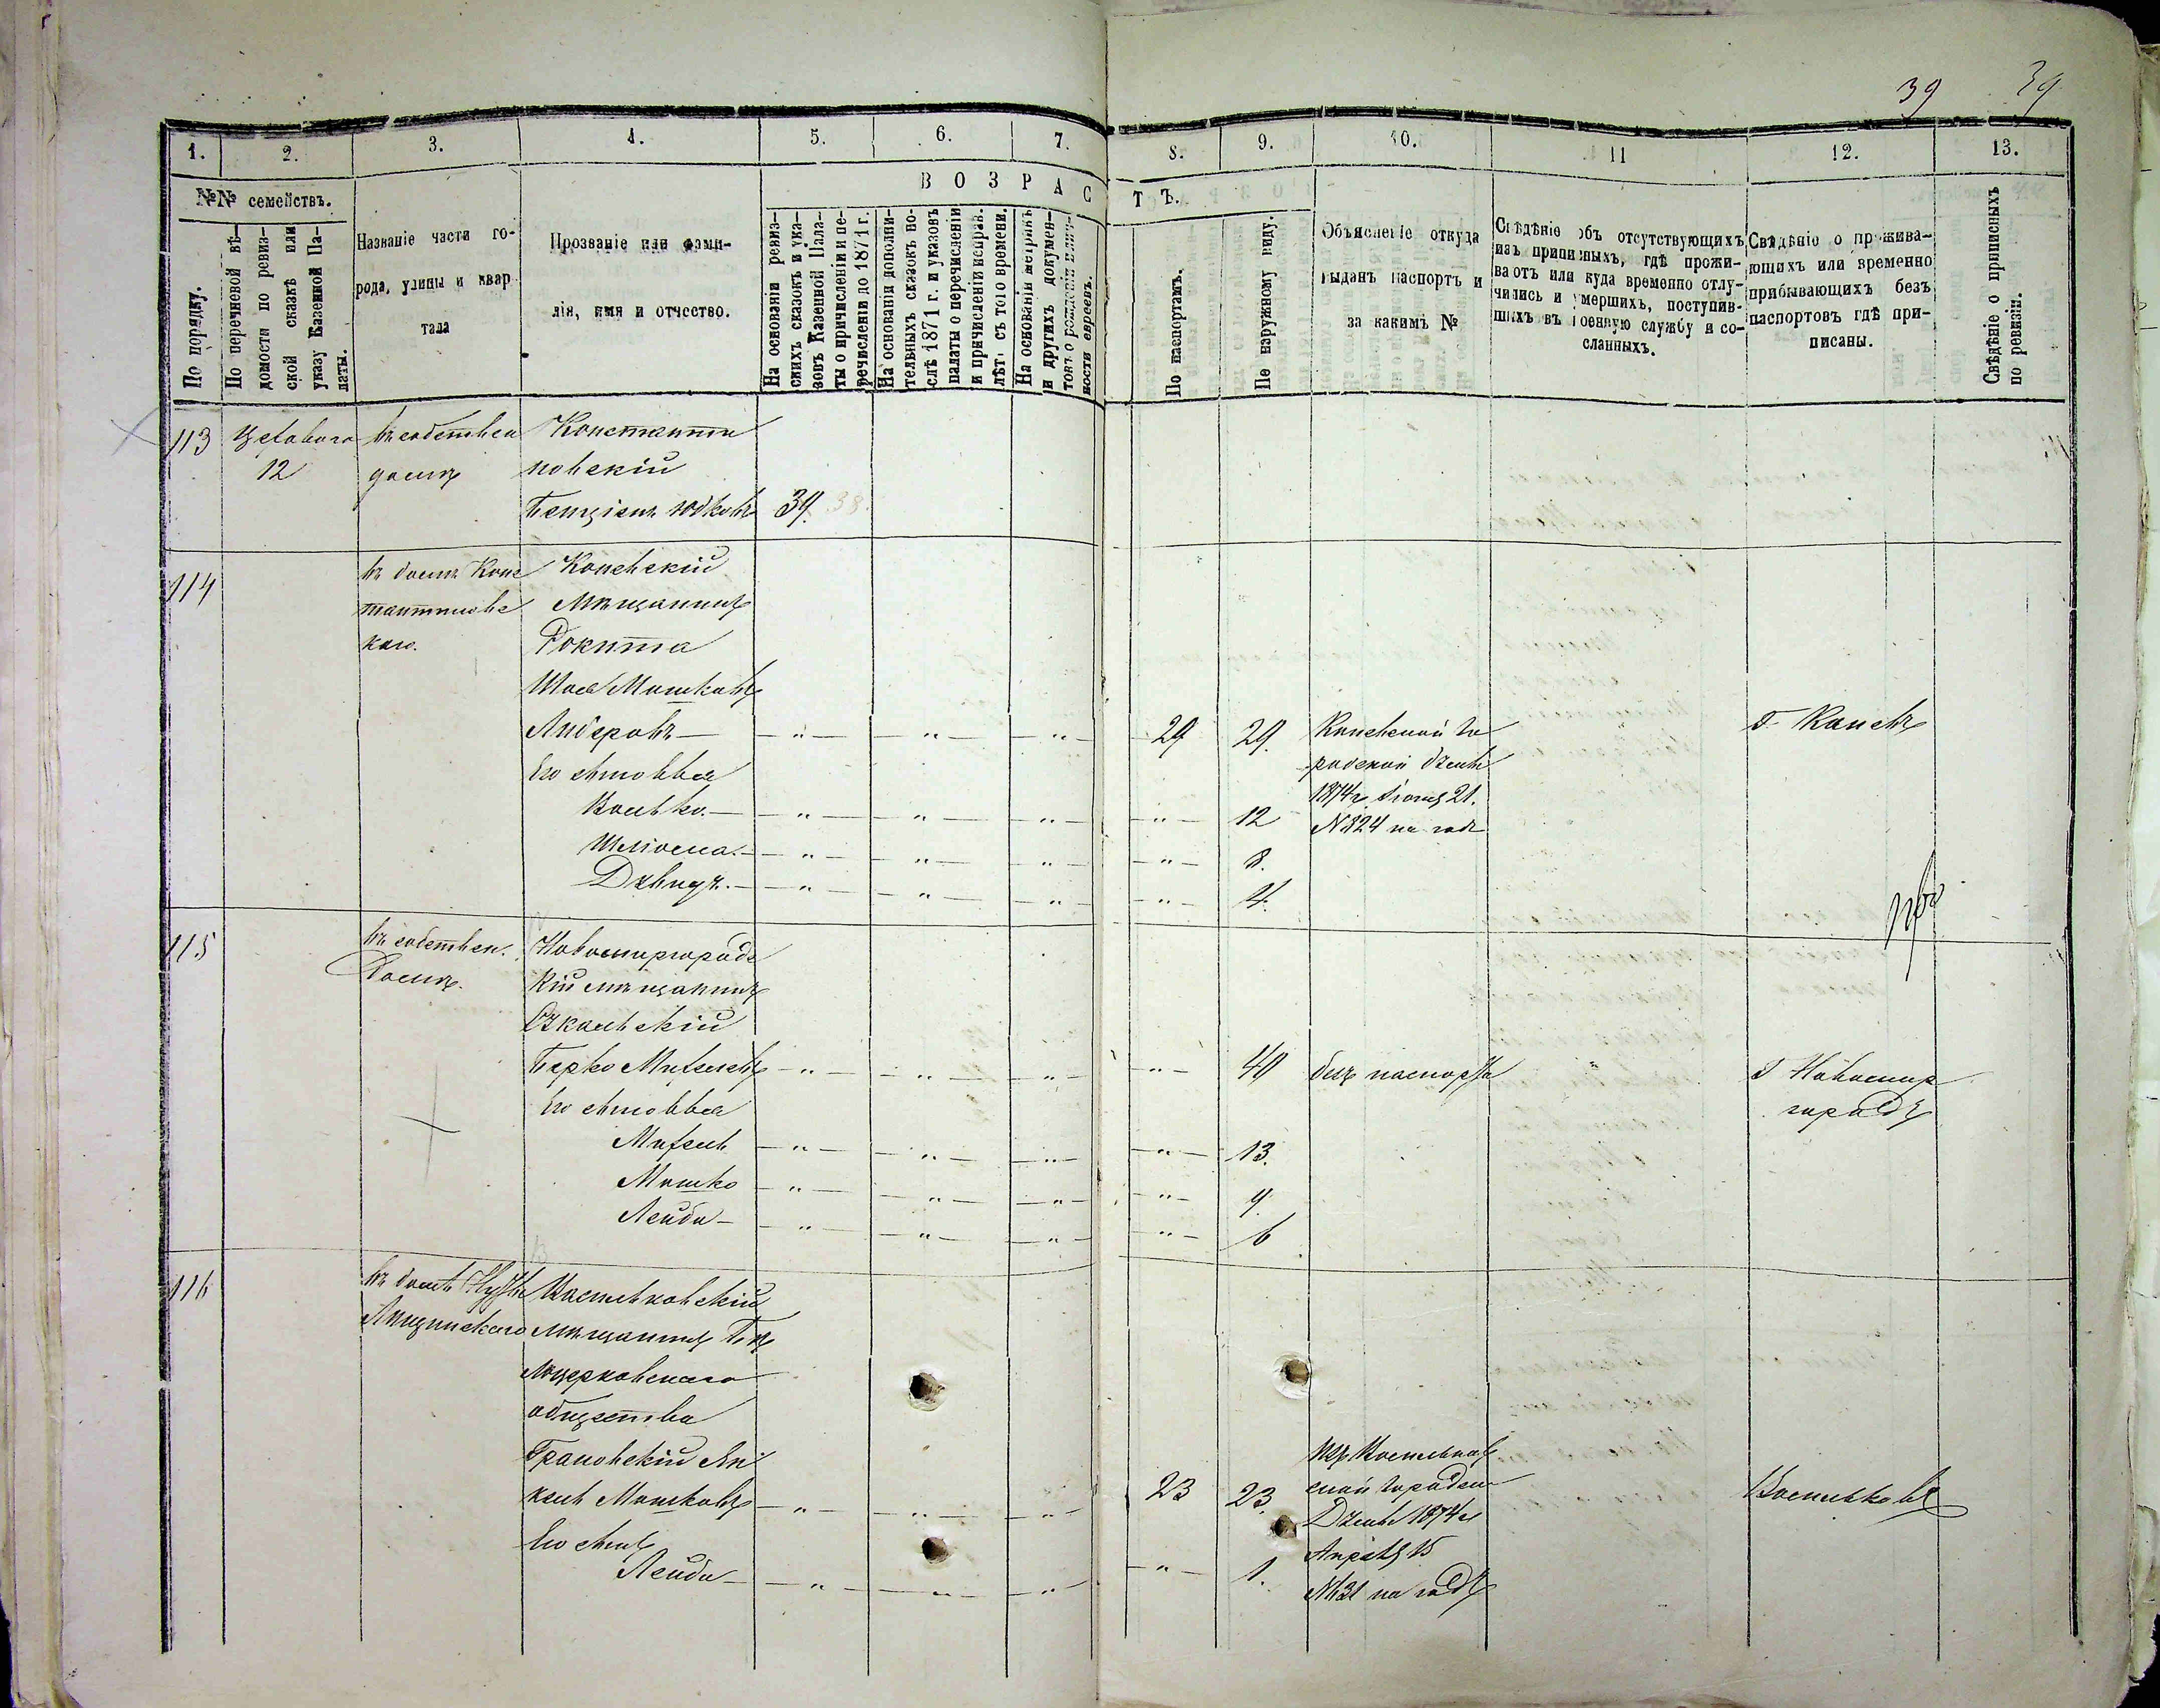 39 39
1. 2. 3. 4. 5. 6. 7. 8. 9. 10. 11 12. 13.
№№ семействъ.
В О З Р А С Т Ъ.
По порядку.
По перечневой вѣ-
домости по ревиз-
ской сказкѣ или
указу Казенной Па-
латы.
Названіе части го-
рода, улицы и квар
тала
Прозваніе или фами-
лія, имя и отчество.
На основаніи ревиз-
скихъ сказокъ и ука-
зовъ Казенной Пала-
ты о причисленіи и пе-
речисленіи до 1871 г.
На основаніи дополни-
тельныхъ сказокъ по-
слѣ 1871 г. и указовъ
палаты о перечисленіи
и причисленіи исправ.
лѣтъ съ того времени.
На основаніи метрикъ
и другихъ докумен-
товъ о рожденіи и лич-
ности евреевъ.
По паспортамъ.
По наружному виду.
Объясненіе откуда
выданъ паспортъ и
за какимъ №
Свѣдѣніе объ отсутствующихъ
изъ приписныхъ, гдѣ прожи-
ваютъ или куда временно отлу-
чились и умершихъ, поступив-
шихъ въ военную службу и со-
сланныхъ.
Свѣдѣніе о прожива-
ющихъ или временно
прибывающихъ безъ
паспортовъ гдѣ при-
писаны.
Свѣдѣніе о приписныхъ
по ревизіи.
113 12 въ собствен
домѣ
Константи
новскій
Бенціонъ Юдковъ 39. 38.
114 въ домѣ Конс
тантиновс
каго.
Каневскій
мѣщанинъ
Рокита
Мошковъ
Лидеровъ — " — " — " — 29 29. Каневской го
родской думы
1874 г. 21.
№ 324 на годъ
г. Каневъ
Его сыновья
Волько. — " — " — " — " — 12
Шлiома. — " — " — " — " — 8.
Давидъ. — " — " — " — " — 4.
115 въ собствен.
домѣ.
Новомиргородс
кій мѣщанинъ
Берко — " — " — " — " — 40 безъ паспорта " г Новомир
городъ
Его сыновья
— " — " — " — " — 13.
Мошко — " — " — " — " — 9.
Лейба — " — " — " — " — 6
116 въ домѣ
Липинскаго
Васильковскій
мѣщанинъ Бѣ
лоцерковскаго
общества
Грановскій Ян
кель Мошковъ — " — " — " — 23 23. Васильков
ской городск
Думы 1874 г
Апрѣля 15
№ 31 на годъ
Васильковъ
Его сынъ
Лейба — " — " — " — " — 1.